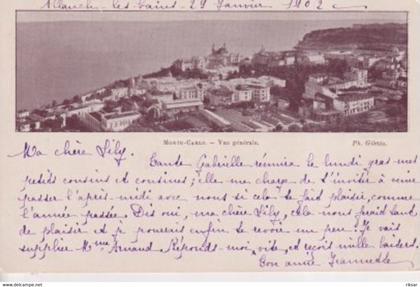 Allauch - les-bains - 29 Janvier 1902
MONTE-CARLO. - Vue générale.
Ph. Giletta.
Ma chère Lily,
Tante Gabrielle réunira le lundi gras mes
petits cousins et cousines; elle me charge de t'inviter à venir
passer l'après-midi avec nous si cela te fait plaisir, comme
l'année passée. Dis oui, ma chère Lily, cela nous ferait tant
de plaisir et je pourrais enfin te revoir un peu! Je vais
supplier Mme Arnaud. Réponds-moi vite, et reçois mille baisers.
Ton amie Jeannette